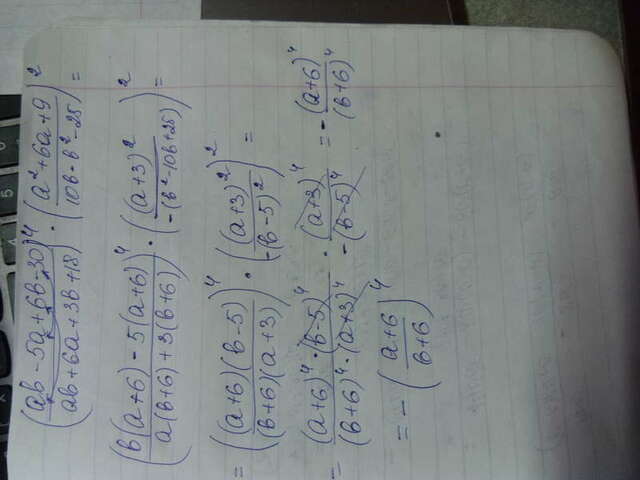 (ab-5a+6b-30 / ab+6a+3b+18)⁴ · (a²+6a+9 / 10b-b²-25)² =
(b(a+6)-5(a+6) / a(b+6)+3(b+6))⁴ · ((a+3)² / -(b²-10b+25))² =
= ((a+6)(b-5) / (b+6)(a+3))⁴ · ((a+3)² / -(b-5)²)² =
= (a+6)⁴·(b-5)⁴ / (b+6)⁴·(a+3)⁴ · (a+3)⁴ / -(b-5)⁴ = - (a+6)⁴ / (b+6)⁴
= - (a+6 / b+6)⁴